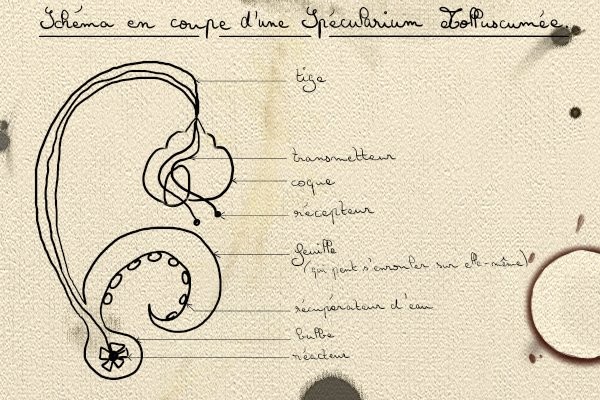 Schéma en coupe d'une Spécularium Tolluscumée.
tige
transmetteur
coque
récepteur
feuille
(qui peut s'enrouler sur elle-même)
récupérateur d'eau
bulbe
réacteur